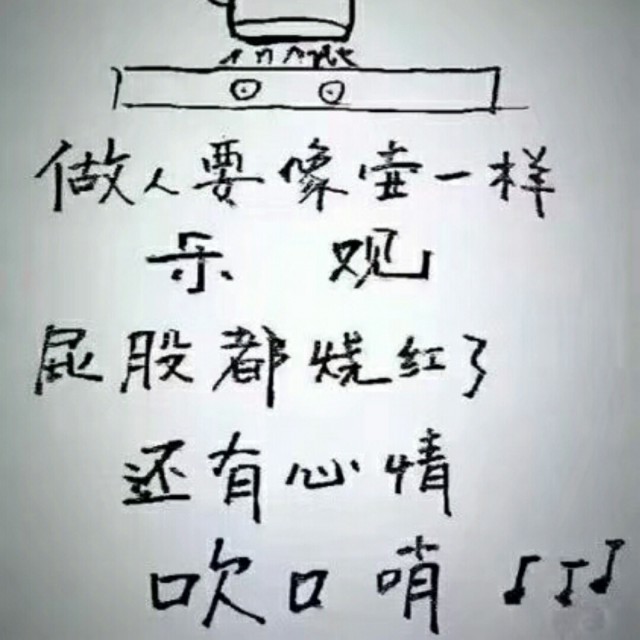 做人要像壶一样
乐 观
屁股都烧红了
还有心情
吹口哨